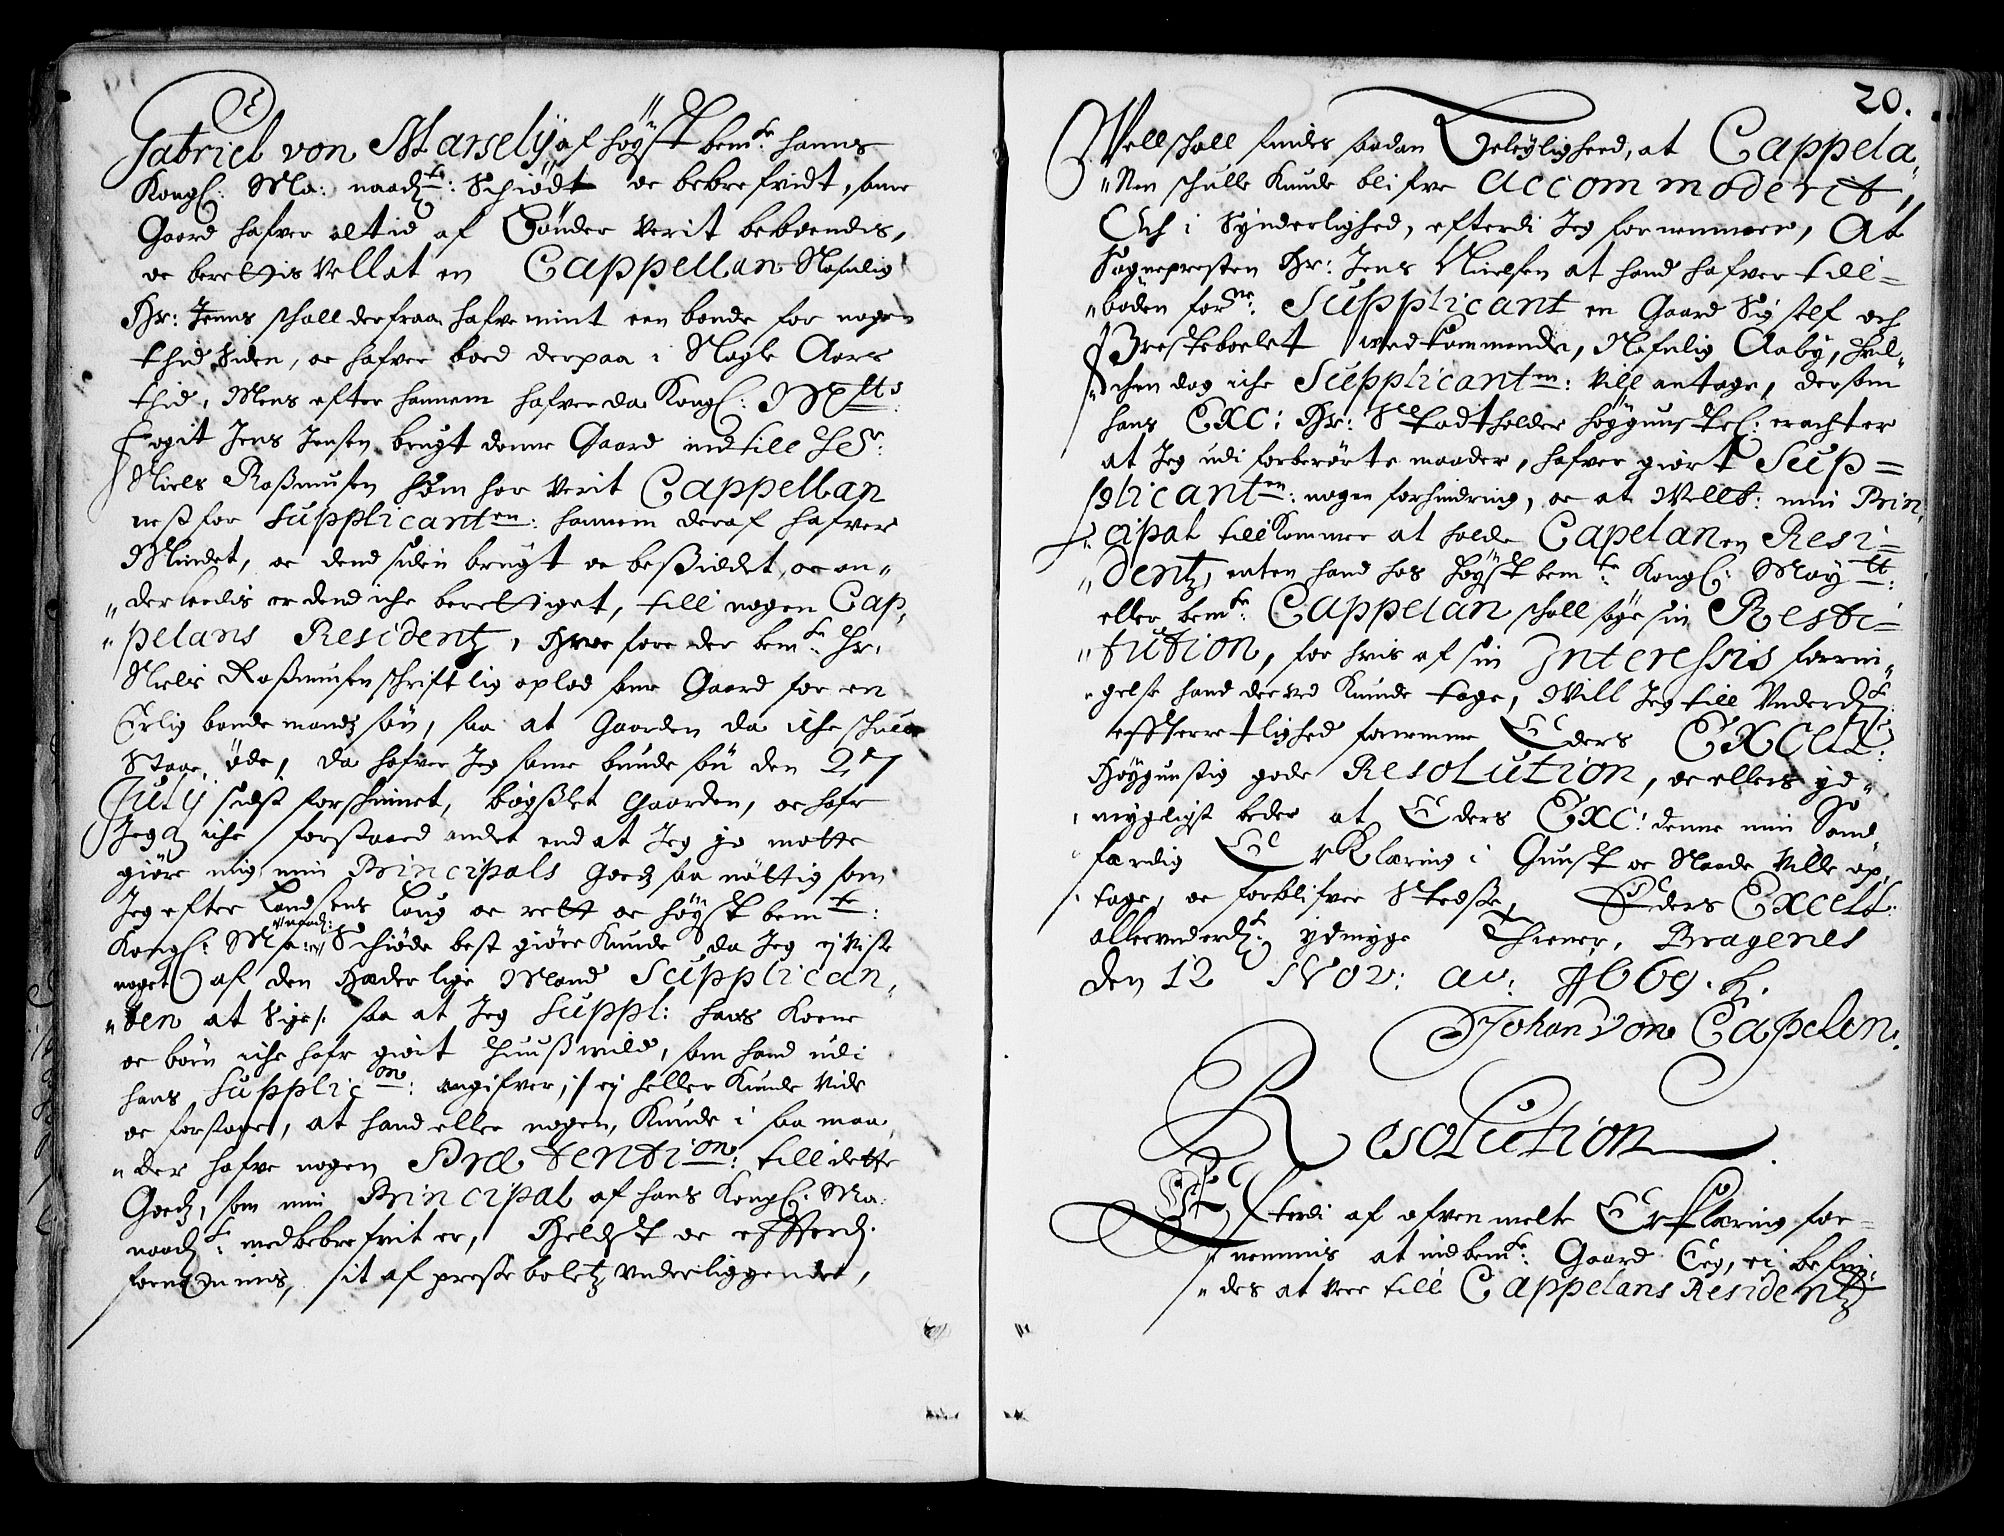 Gabriel von Marselÿ af höÿst bemte: hanns
Kongl: Ma: naadste: Schiödt oc bebrefvidt, same
Gaard hafver altid af Bönder verit beboendis,
oc berettis vel lat en Cappellan Nafnlig
Hr: Jenns schall derfraa hafve mint een bonde for nogen
thid siden, oc hafver boed derpaa i Nogle Aars
thid, Mens efter hannem hafver da Kongl: Maytts:
fogit Jens Jensen brugt denne Gaard indtill Her:
Niels Rasmusen som her verit Cappellan
nest for Supplicanten: hannem deraf hafver
Mindet, oc dend siden brugt oc besiddet, oc an„
„derledis er dend iche berettiget, till nogen Cap„
„pelans Residentz, Hvorfore der bemte: Hr:
Niels Rasmusen schriftlig oplod same Gaard for en
Erlig bonde mandz søn, saa at Gaarden da iche schulle
Staae øde, da hafver Jeg same bunde søn den 27
Julÿ sidst forschinnet, bögslet Gaarden, oc hafr
Jeg iche forstaaed andet end at Jeg jo motte
giøre mig min Principals Godz saa nøttig som
Jeg efter Landsens Laug oc rett oc höÿst bemte:
Kongl: Ma: naad: Schiøde best giøre Kunde da Jeg ej viste
noget af den Hæderlige Mand Supplican„
„ten at sige/: saa at Jeg Suppl: hans Kone
oc børn iche hafr giort Huusvild, som hand udi
hans Supplicon: angifver:/ ej heller Kunde vide
oc forstaae, at hand eller nogen, Kunde i saa maa„
„der hafve nogen Prætention: till dette
Godz, som min Principal af hans Kongl: Ma:
naadte: med bebrefvit er, Heldst oc efterdj
fornemmis, sit af preste boletz underliggendes,
20.
Vell schall findes saadan Beleÿlighed, at Cappela„
„Nen schulle Kunde blifve accommoderit,
Och i Synderlighed, efterdi Jeg fornemmer, At
Sognepresten Hr: Jens Nielsen at hand hafver till=
„böden forne: Supplicant en Gaard Sig self och
Presteboelet vedkommende, Nafnlig Aaby, hvil„
„chen dog iche Supplicanten: vill antage, dersom
hans Exc: Hr: Stadtholder höÿgunstel: erachter
at Jeg udi forberörte maader, hafver giort Sup=
plicanten: nogen forhindring, oc at Vellb: min Prin„
„cipal till Kommer at holde Capelan en Resi=
„dentz, enten hand hos höÿst bemte: Kongl: Maytt:
eller bemte: Cappelan schall søge sin Resti=
„tution, for hvis af sin Interessis forrin„
„gelse hand derved Kunde tage, Vill Jeg till Underd:
effterrettlighed fornemme Eders Excell:
Höÿgunstig gode Resolution, oc ellers ÿd„
„mygeligst beder at Eders Exc: denne min Sand
færdig Erklæring i Gunst oc Naade ville op„
„tage, oc forblifver Stedse, Eders Excell:
allerunderdste: ydmyge Thiener, Bragenes
den 12 Nov: Ao: 1669.
Johan von Capelen.
Resolution
Efterdi af ofvenmelte Erklæring for=
„nemmis at indbemte: Gaard Eeg, ei befin„
„des at vere till Cappelans Residentz